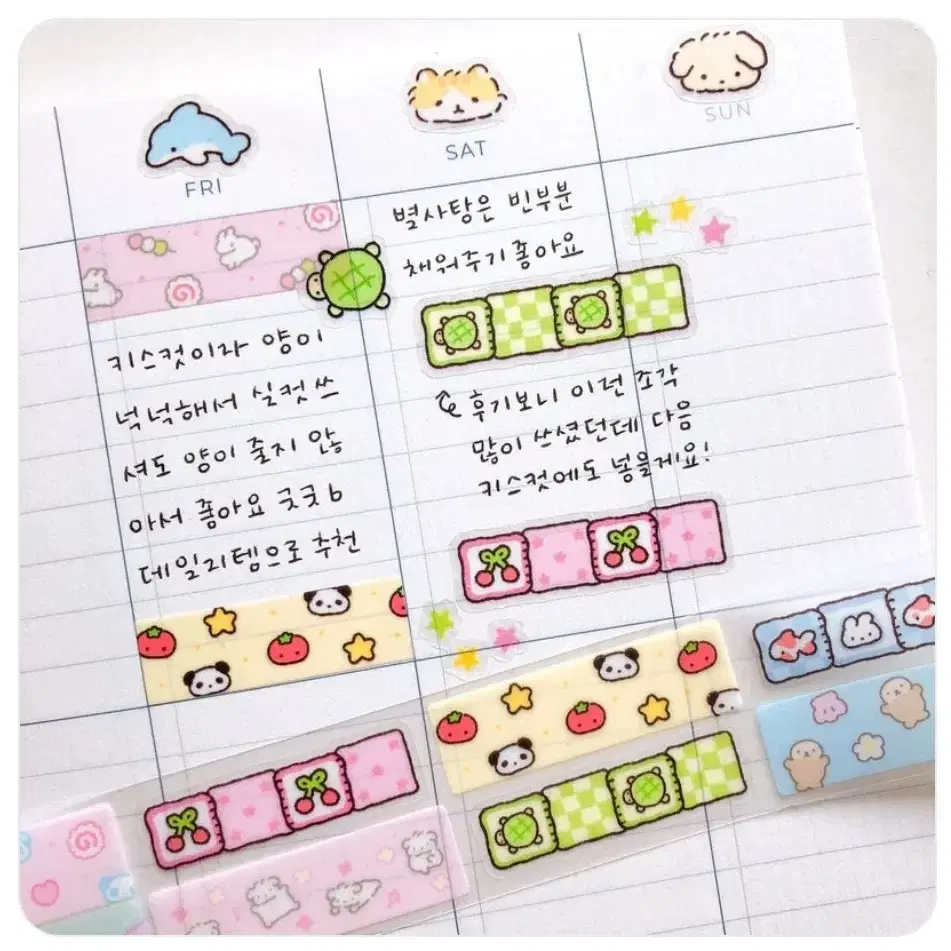 FRI
SAT
SUN
키스컷이라 양이
넉넉해서 실컷 쓰
셔도 양이 줄지 않
아서 좋아요 굿굿b
데일리템으로 추천
별사탕은 빈부분
채워주기 좋아요
후기보니 이런 조각
많이 쓰셨던데 다음
키스컷에도 넣을게요!